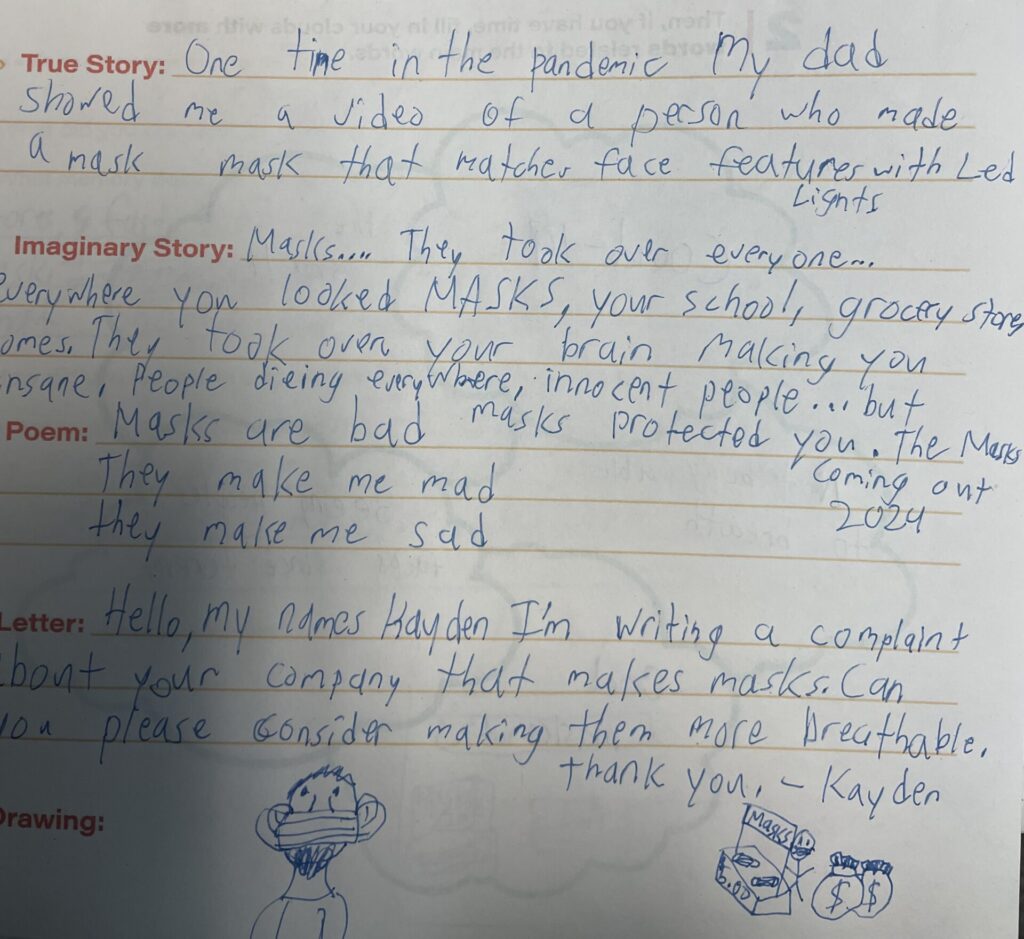 True Story: One time in the pandemic My dad
showed me a video of a person who made
a mask mask that matches face features with Led
Lights
Imaginary Story: Masks.... They took over everyone...
everywhere you looked MASKS, your school, grocery stores,
omes. They took over your brain making you
nsane. People dieing everywhere, innocent people... but
masks protected you. The Masks
coming out
2024
Poem: Masks are bad
They make me mad
they make me sad
Letter: Hello, my names Kayden I'm writing a complaint
about your company that makes masks. Can
you please consider making them more breathable.
thank you. - Kayden
Drawing:
Masks
$ $